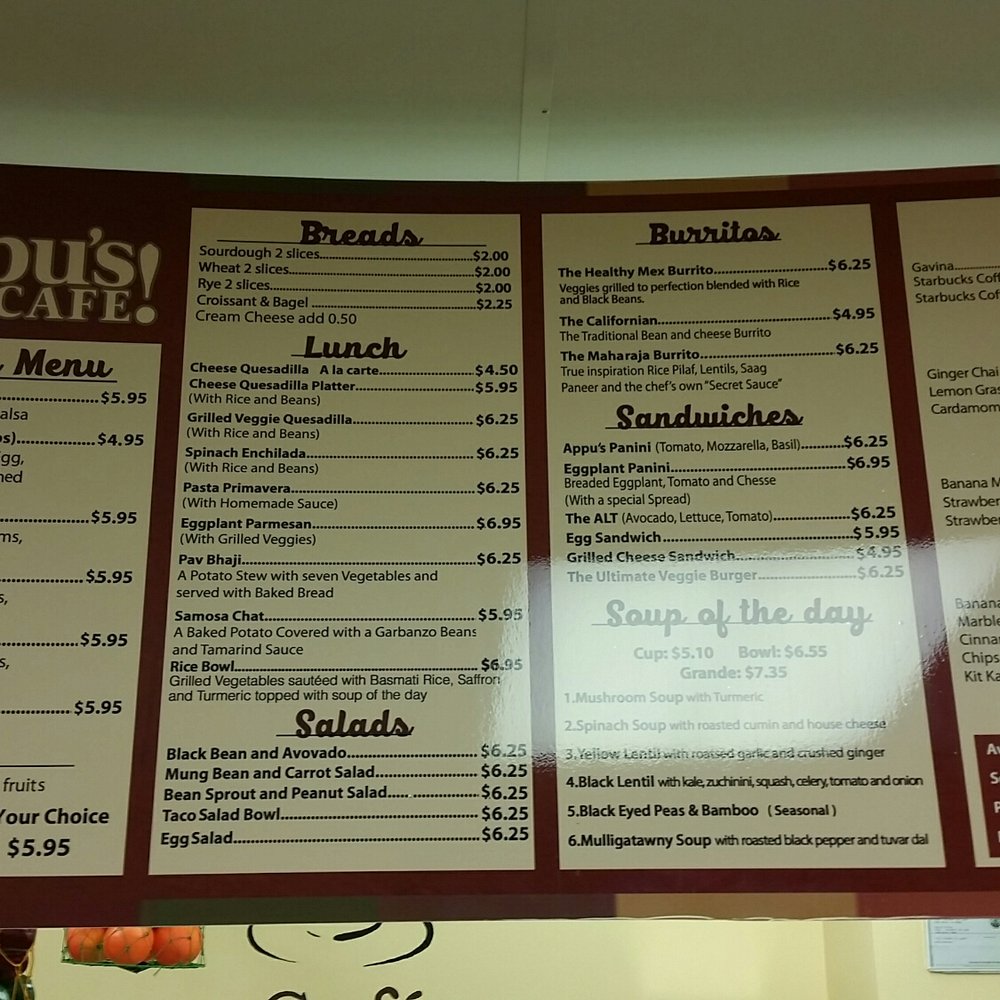 pu's!
CAFE!
Menu
$5.95
alsa
$4.95
gg,
ned
$5.95
ms,
$5.95
s,
$5.95
s,
$5.95
fruits
Your Choice
$5.95
Breads
Sourdough 2 slices $2.00
Wheat 2 slices $2.00
Rye 2 slices $2.00
Croissant & Bagel $2.25
Cream Cheese add 0.50
Lunch
Cheese Quesadilla A la carte $4.50
Cheese Quesadilla Platter $5.95
(With Rice and Beans)
Grilled Veggie Quesadilla $6.25
(With Rice and Beans)
Spinach Enchilada $6.25
(With Rice and Beans)
Pasta Primavera $6.25
(With Homemade Sauce)
Eggplant Parmesan $6.95
(With Grilled Veggies)
Pav Bhaji $6.25
A Potato Stew with seven Vegetables and
served with Baked Bread
Samosa Chat $5.95
A Baked Potato Covered with a Garbanzo Beans
and Tamarind Sauce
Rice Bowl $6.95
Grilled Vegetables sautéed with Basmati Rice, Saffron
and Turmeric topped with soup of the day
Salads
Black Bean and Avovado $6.25
Mung Bean and Carrot Salad $6.25
Bean Sprout and Peanut Salad $6.25
Taco Salad Bowl $6.25
Egg Salad $6.25
Burritos
The Healthy Mex Burrito $6.25
Veggies grilled to perfection blended with Rice
and Black Beans.
The Californian $4.95
The Traditional Bean and cheese Burrito
The Maharaja Burrito $6.25
True inspiration Rice Pilaf, Lentils, Saag
Paneer and the chef's own "Secret Sauce"
Sandwiches
Appu's Panini (Tomato, Mozzarella, Basil) $6.25
Eggplant Panini $6.95
Breaded Eggplant, Tomato and Chesse
(With a special Spread)
The ALT (Avocado, Lettuce, Tomato) $6.25
Egg Sandwich $5.95
Grilled Cheese Sandwich $4.95
The Ultimate Veggie Burger $6.25
Soup of the day
Cup: $5.10 Bowl: $6.55
Grande: $7.35
1.Mushroom Soup with Turmeric
2.Spinach Soup with roasted cumin and house cheese
3.Yellow Lentil with roatsed garlic and crushed ginger
4.Black Lentil with kale, zuchinini, squash, celery, tomato and onion
5.Black Eyed Peas & Bamboo (Seasonal)
6.Mulligatawny Soup with roasted black pepper and tuvar dal
Gavina
Starbucks Coff
Starbucks Cof
Ginger Chai
Lemon Gras
Cardamom
Banana M
Strawber
Strawber
Banana
Marble
Cinna
Chips
Kit Ka
Café